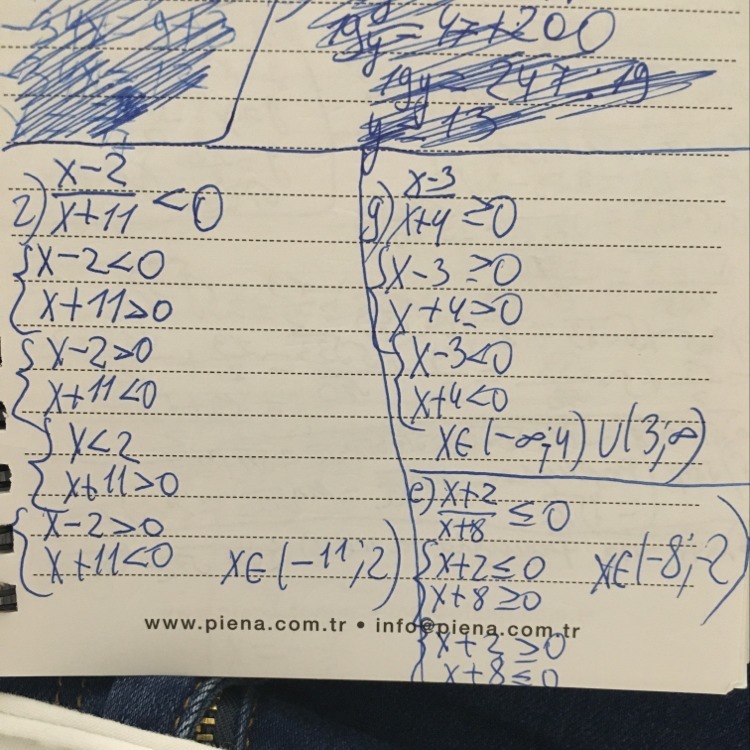 19y = 47+200
19y = 247:19
y = 13
г) x-2/x+11 <0
{x-2<0
x+11>0
{x-2>0
x+11<0
{x<2
x+11>0
{x-2>0
x+11<0 x∈(-11;2)
д) x-3/x+4 ≥0
{x-3 ≥0
x+4≥0
{x-3<0
x+4<0
x∈(-∞;4) ∪(3;∞)
е) x+2/x+8 ≤0
{x+2≤0 x∈(-8;-2)
x+8≥0
{x+2≥0
x+8≤0
www.piena.com.tr • info@piena.com.tr